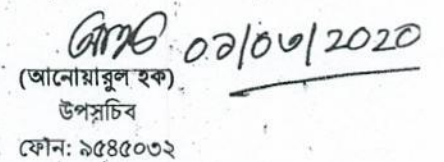 ০১/০৩/2020
(আনোয়ারুল হক)
উপসচিব
ফোন: ৯৫৪৫০৩২